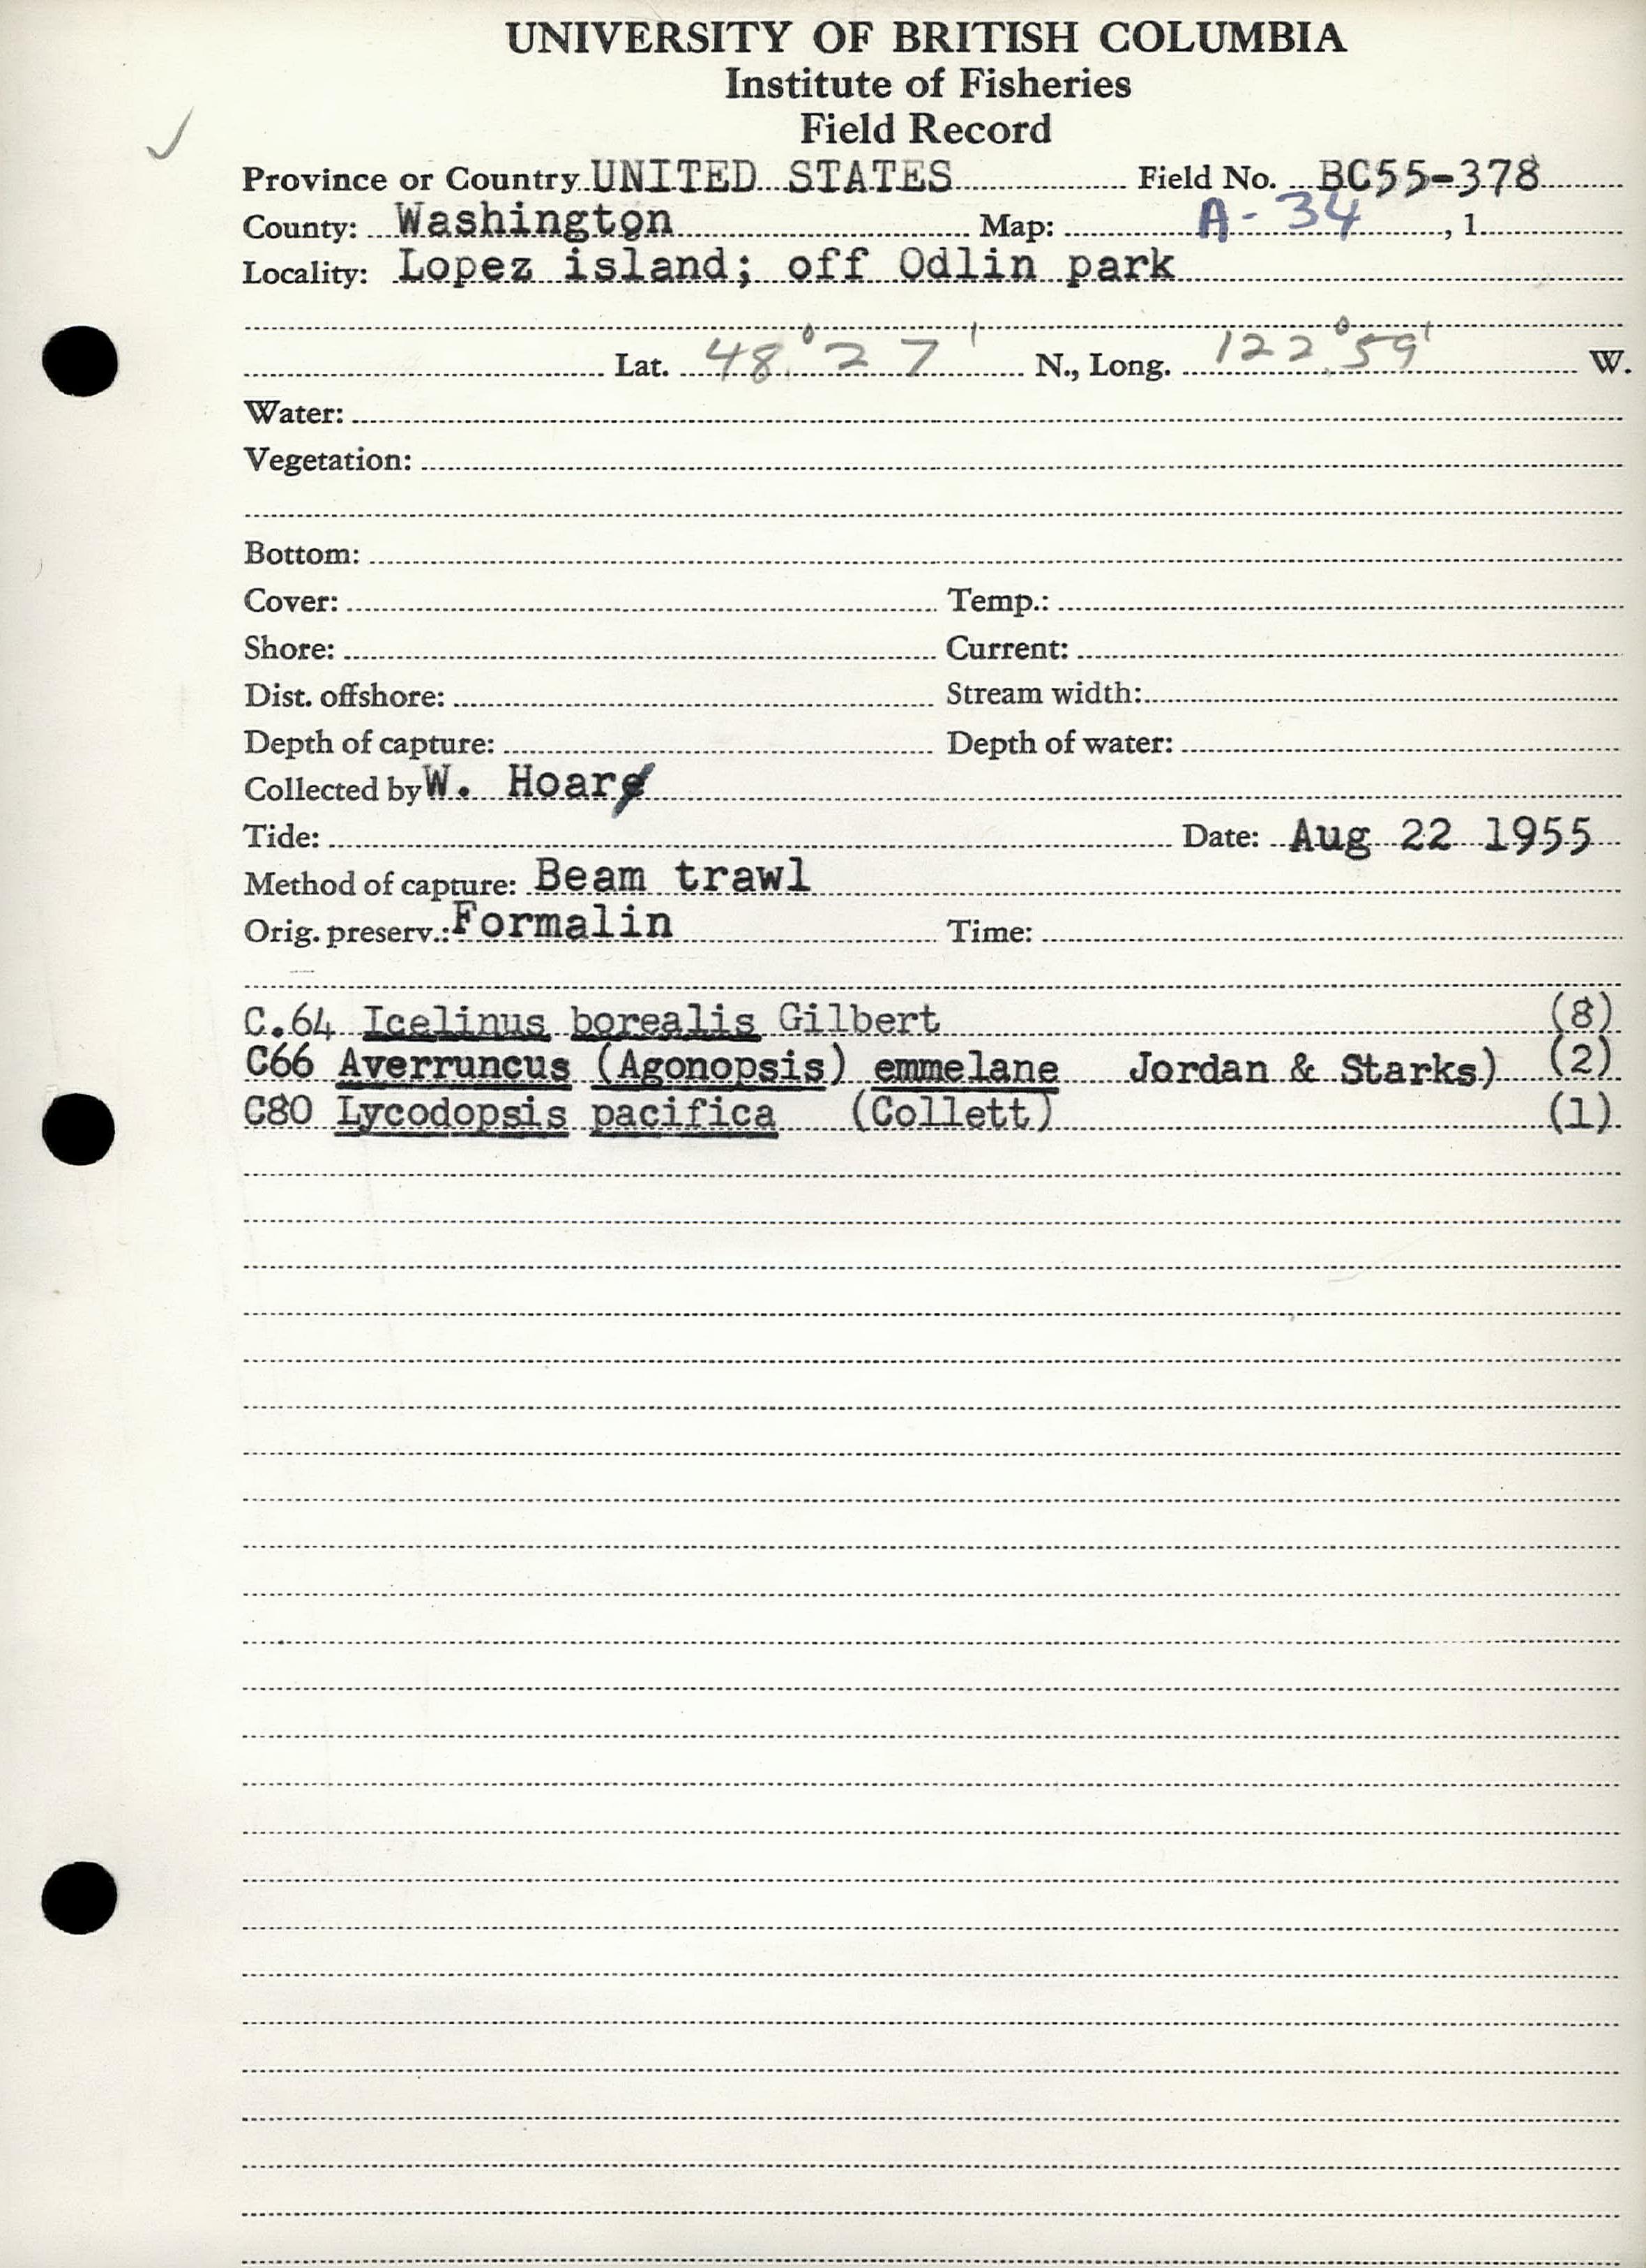 UNIVERSITY OF BRITISH COLUMBIA
Institute of Fisheries
Field Record
Province or Country UNITED STATES Field No. BC55-378
County: Washington Map: A-34, 1
Locality: Lopez island; off Odlin park
Lat. 48°27' N., Long. 122°59' W.
Water:
Vegetation:
Bottom:
Cover: Temp.:
Shore: Current:
Dist. offshore: Stream width:
Depth of capture: Depth of water:
Collected by W. Hoar
Tide: Date: Aug 22 1955
Method of capture: Beam trawl
Orig. preserv.: Formalin Time:
C.64 Icelinus borealis Gilbert (8)
C66 Averruncus (Agonopsis) emmelane Jordan & Starks) (2)
C80 Lycodopsis pacifica (Collett) (1)